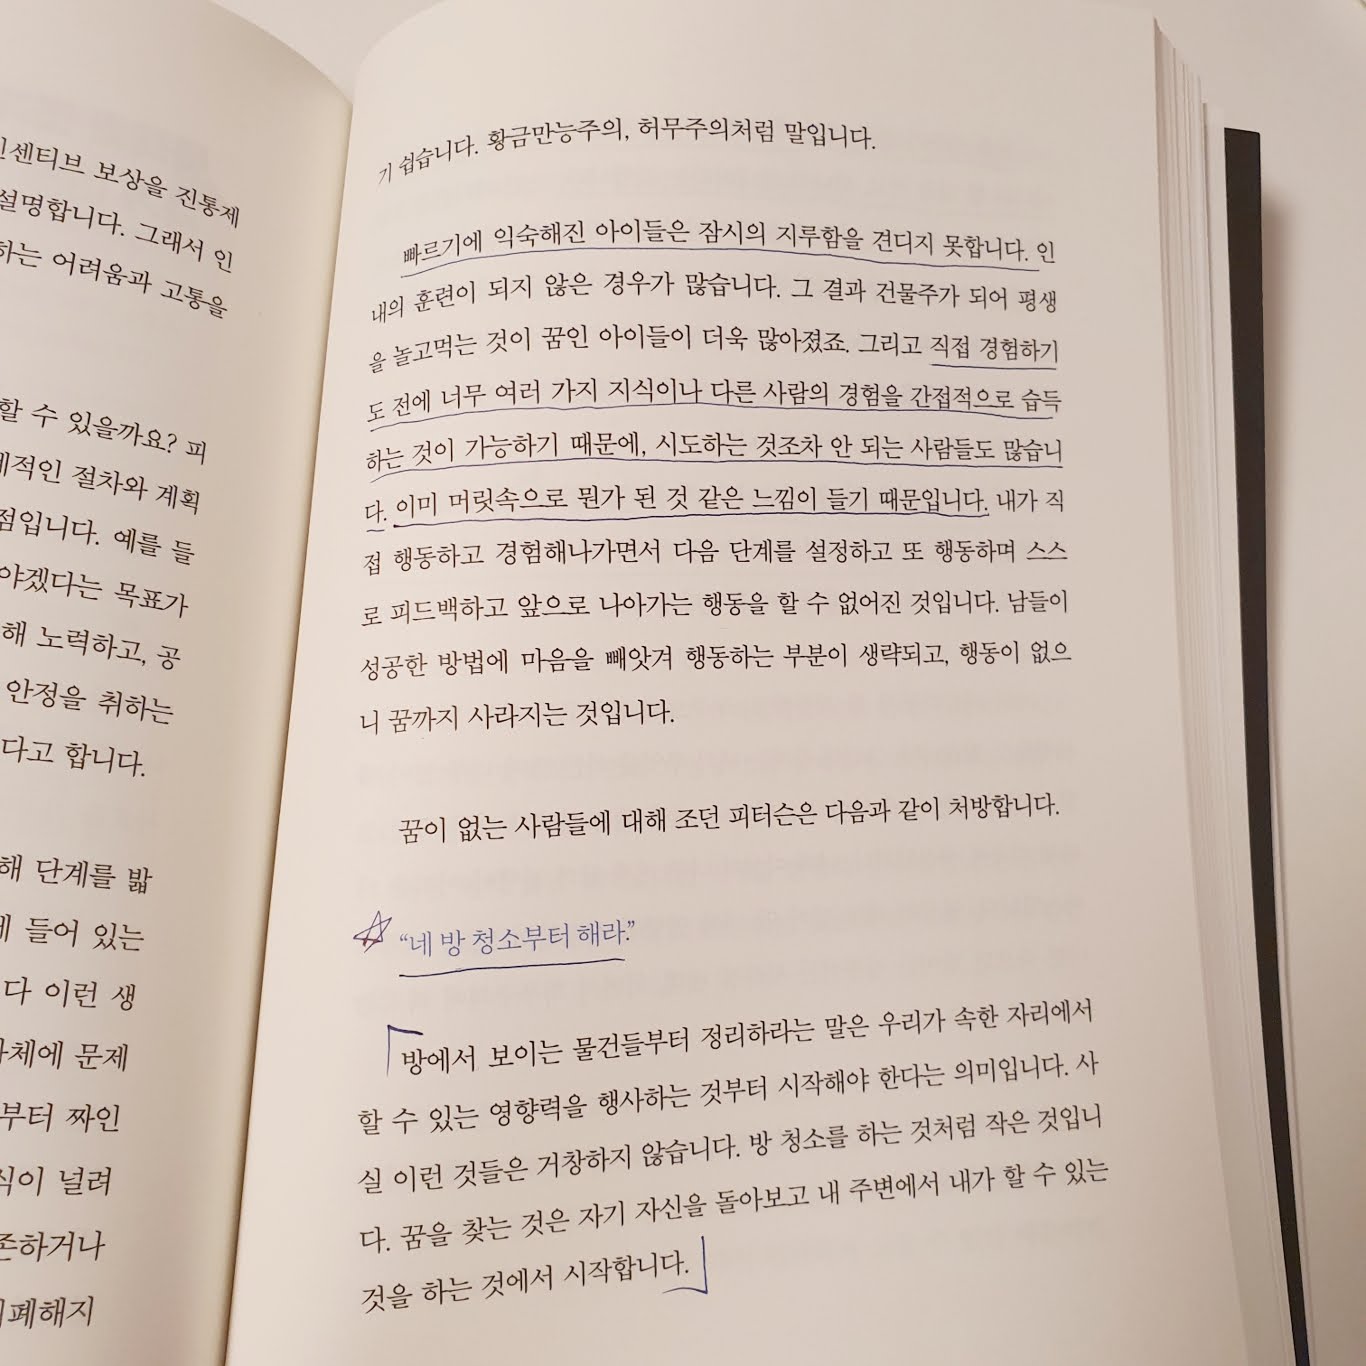 인센티브 보상을 진통제
설명합니다. 그래서 인
하는 어려움과 고통을
할 수 있을까요? 피
체적인 절차와 계획
점입니다. 예를 들
야겠다는 목표가
해 노력하고, 공
안정을 취하는
다고 합니다.
해 단계를 밟
들어 있는
다 이런 생
자체에 문제
부터 짜인
식이 널려
존하거나
폐해지
기 쉽습니다. 황금만능주의, 허무주의처럼 말입니다.
빠르기에 익숙해진 아이들은 잠시의 지루함을 견디지 못합니다. 인
내의 훈련이 되지 않은 경우가 많습니다. 그 결과 건물주가 되어 평생
을 놀고먹는 것이 꿈인 아이들이 더욱 많아졌죠. 그리고 직접 경험하기
도 전에 너무 여러 가지 지식이나 다른 사람의 경험을 간접적으로 습득
하는 것이 가능하기 때문에, 시도하는 것조차 안 되는 사람들도 많습니
다. 이미 머릿속으로 뭔가 된 것 같은 느낌이 들기 때문입니다. 내가 직
접 행동하고 경험해나가면서 다음 단계를 설정하고 또 행동하며 스스
로 피드백하고 앞으로 나아가는 행동을 할 수 없어진 것입니다. 남들이
성공한 방법에 마음을 빼앗겨 행동하는 부분이 생략되고, 행동이 없으
니 꿈까지 사라지는 것입니다.
꿈이 없는 사람들에 대해 조던 피터슨은 다음과 같이 처방합니다.
“네 방 청소부터 해라.”
방에서 보이는 물건들부터 정리하라는 말은 우리가 속한 자리에서
할 수 있는 영향력을 행사하는 것부터 시작해야 한다는 의미입니다. 사
실 이런 것들은 거창하지 않습니다. 방 청소를 하는 것처럼 작은 것입니
다. 꿈을 찾는 것은 자기 자신을 돌아보고 내 주변에서 내가 할 수 있는
것을 하는 것에서 시작합니다.